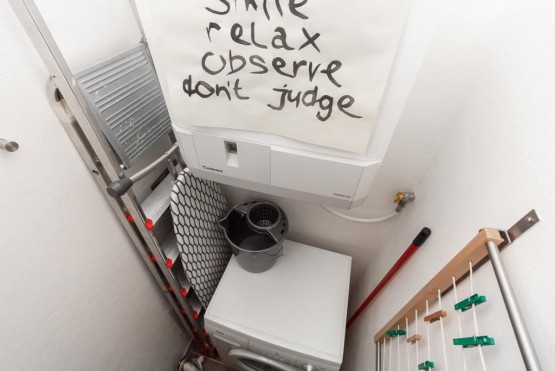 smile
relax
observe
don't judge